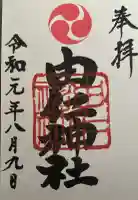 奉拝
由加神社
令和元年八月九日